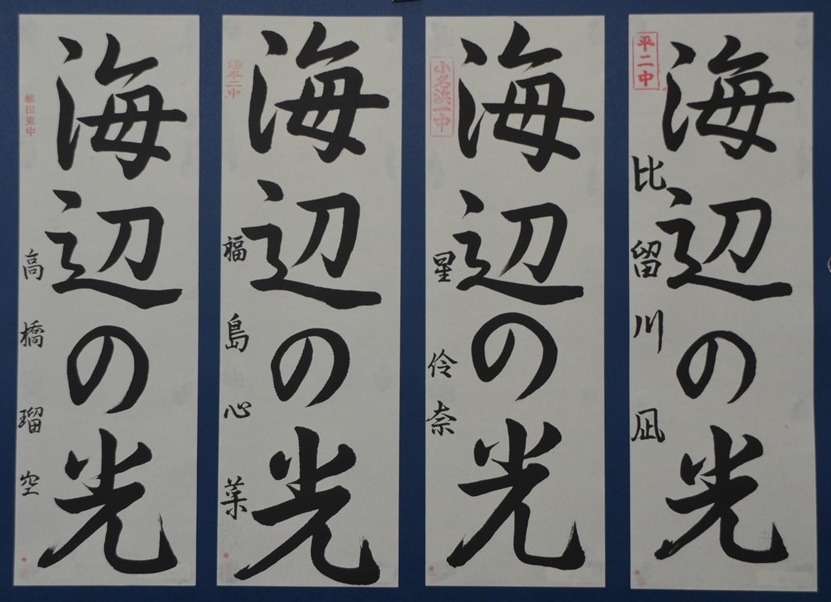 平二中
海辺の光
比留川凪
小名浜一中
海辺の光
星伶奈
湯本二中
海辺の光
福島心菜
植田東中
海辺の光
高橋瑠空